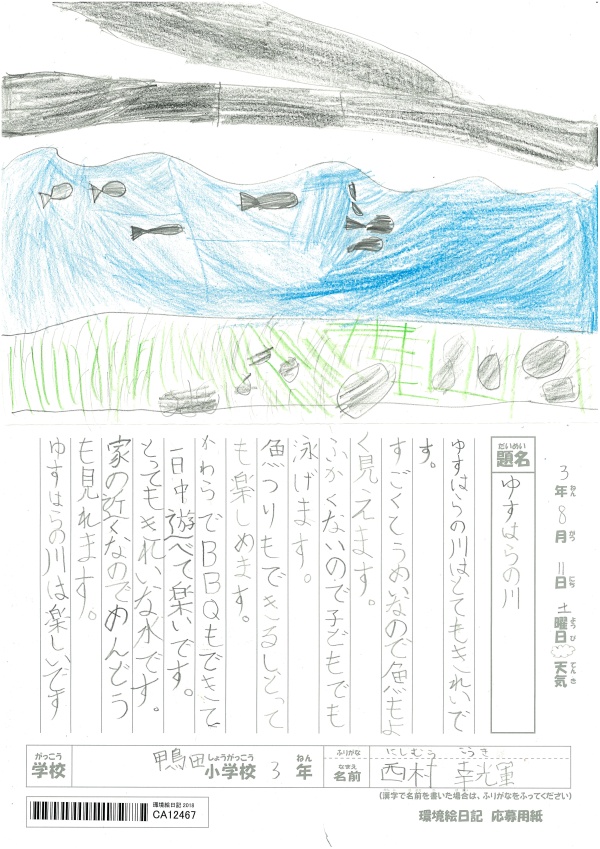 3年ねん8月がつ11日にち土曜日ようび天気てんき
題名だいめい ゆすはらの川
ゆすはらの川はとてもきれいで
す。
すごくとうめいなので魚もよ
く見えます。
ふかくないので子どもでも
泳げます。
魚つりもできるしとって
も楽しめます。
かわらでBBQもできて
一日中遊べて楽いです。
とてもきれいな水です。
家の近くなのでめんどう
も見れます。
ゆすはらの川は楽しいです
学校がっこう 鴨田小学校しょうがっこう 3年ねん
ふりがな にしむら こうき
名前なまえ 西村 幸光軍
(漢字で名前を書いた場合は、ふりがなをふってください)
環境絵日記 2018
CA12467
環境絵日記 応募用紙